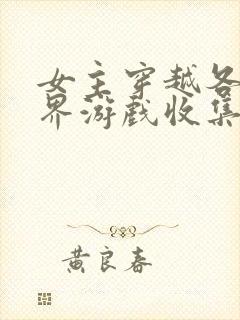 女主穿越各
界游戏收集
黄良春